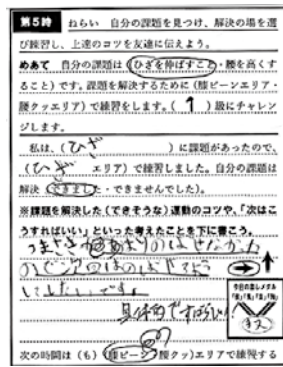 第5時 ねらい 自分の課題を見つけ、解決の場を選
び練習し、上達のコツを友達に伝えよう。
めあて 自分の課題は(ひざを伸ばすこと・腰を高くす
ること)です。課題を解決するために(膝ピーンエリア・
腰クッエリア)で練習をします。( 1 )級にチャレン
ジします。
私は、(ひざ )に課題があったので、
(ひざ エリア)で練習しました。自分の課題は
解決(できました・できませんでした)。
※課題を解決した(できそうな)運動のコツや、「次はこ
うすればいい」といった考えたことを下に書こう。
いきたいです。
具体的ですばらしい!
今日の楽しメダル
次の時間は(も)(膝ピーン・腰クッ)エリアで練習する